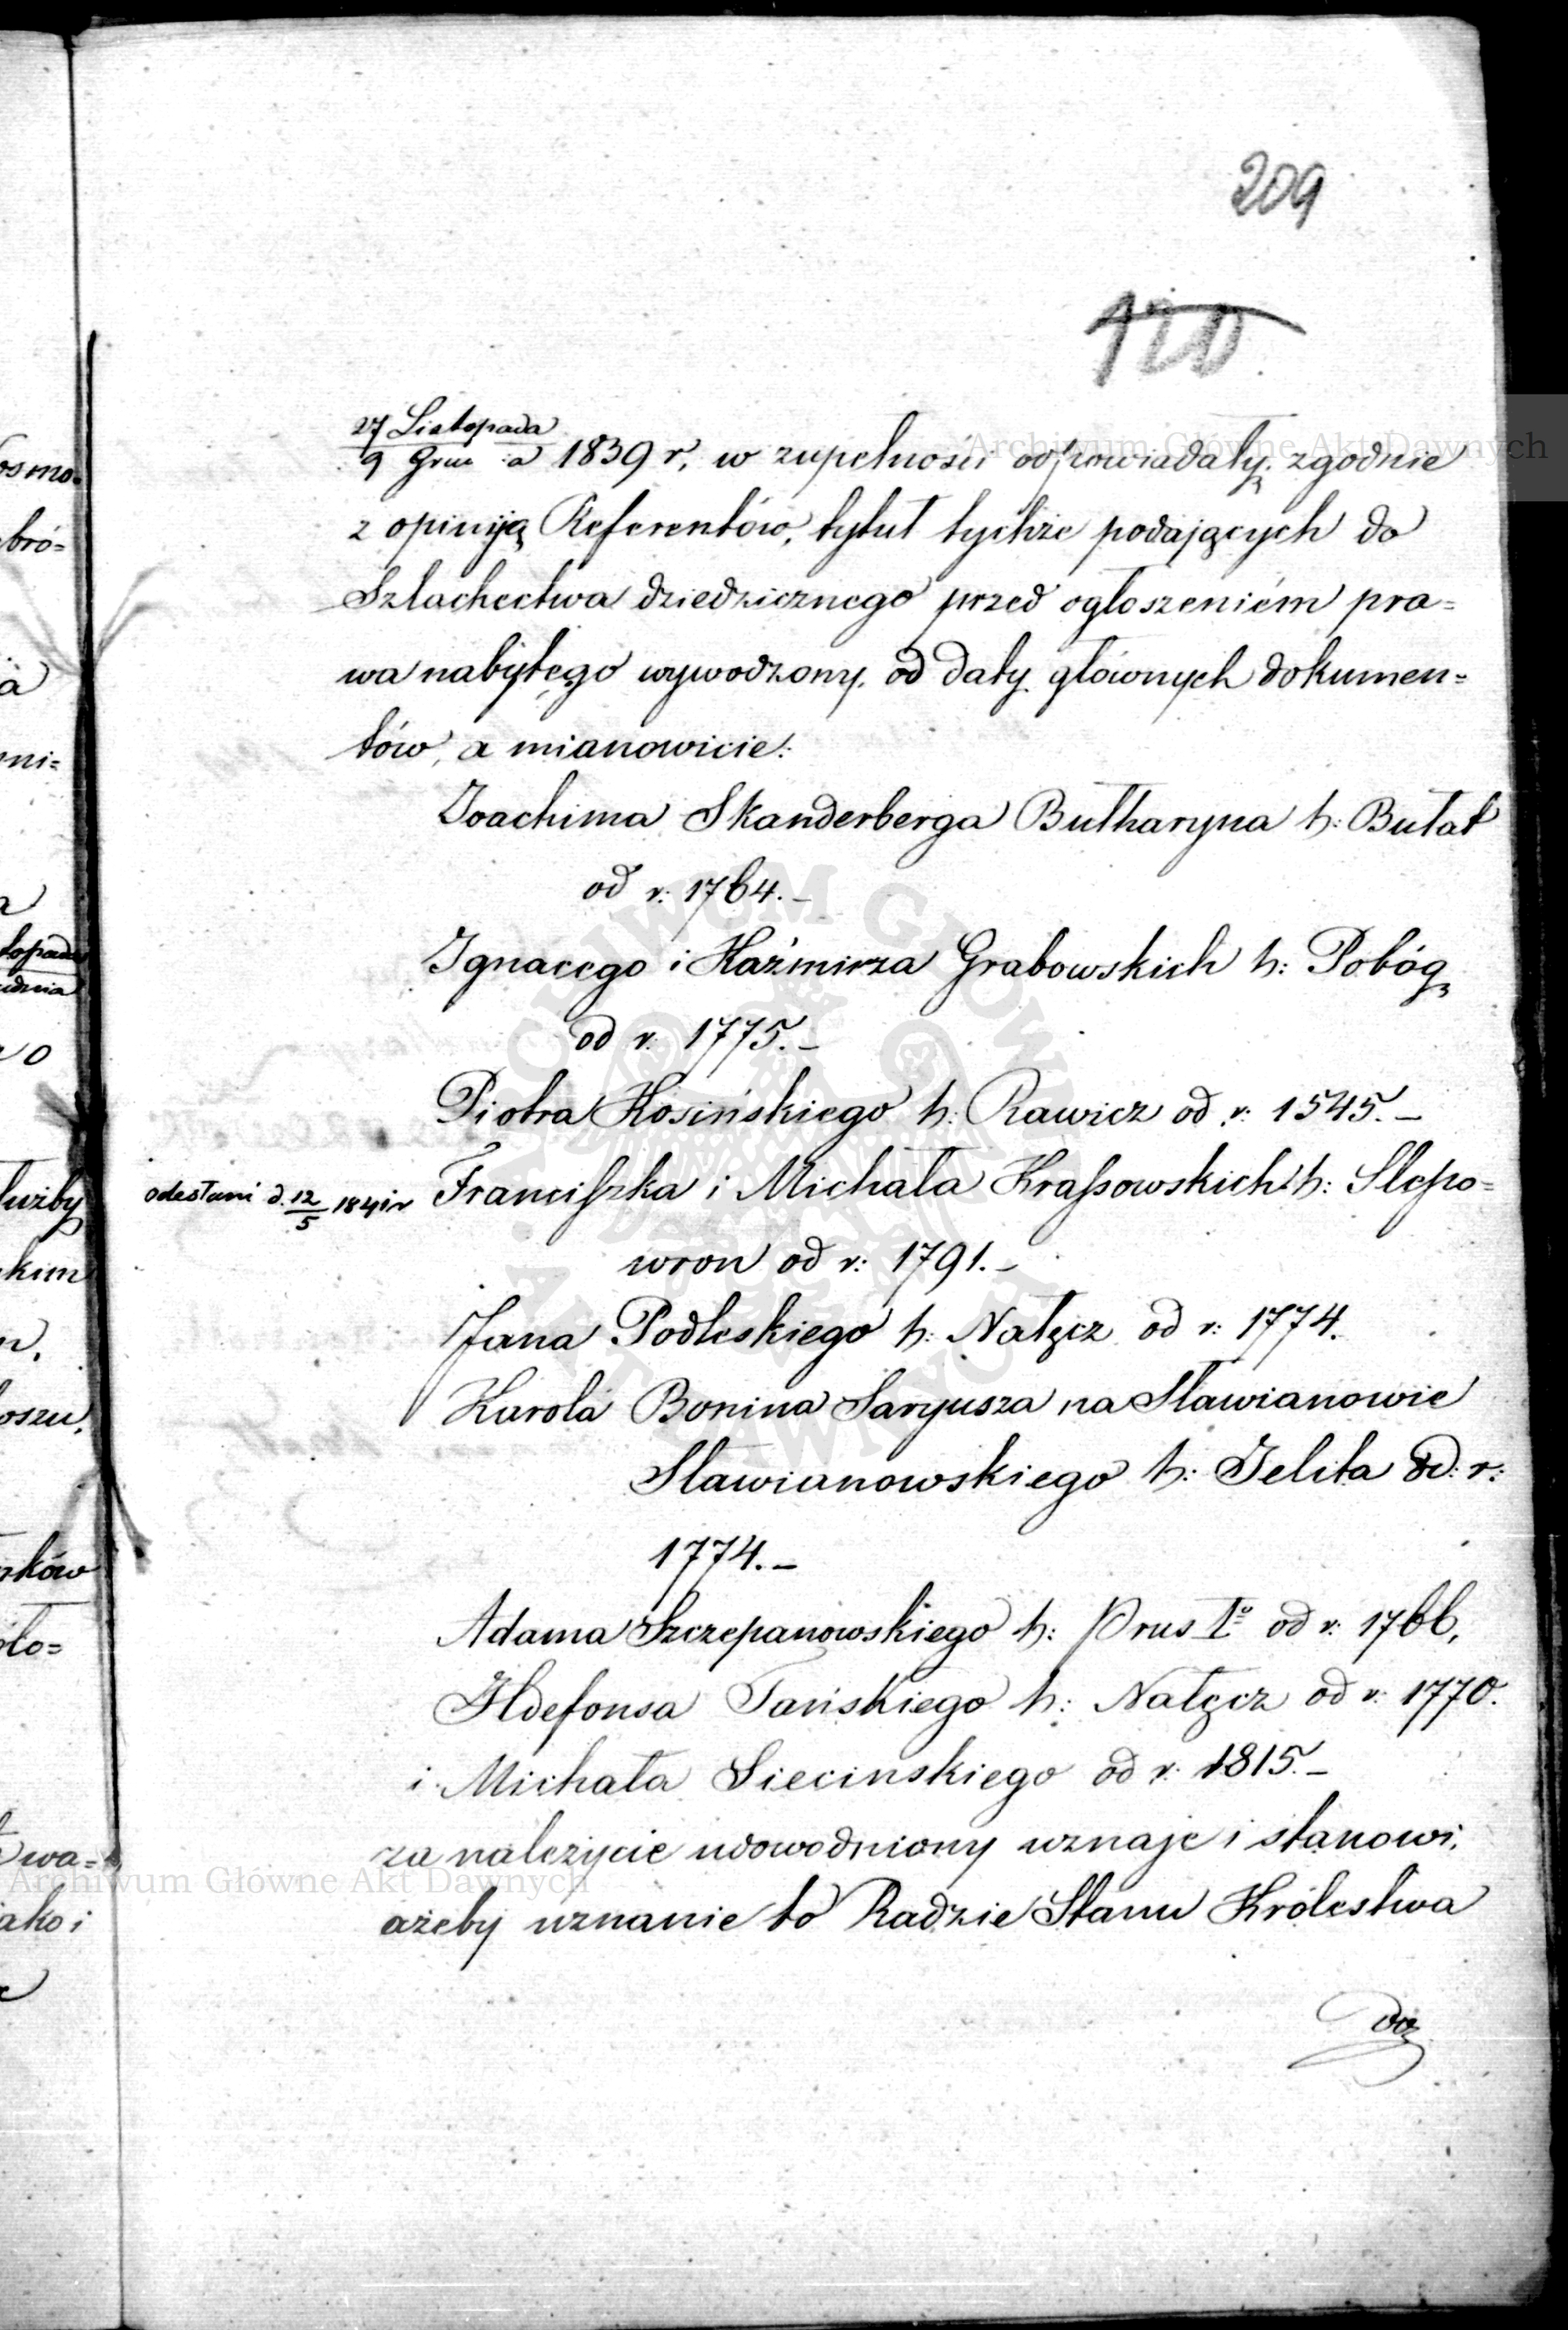 209
120
27 Listopada
9 Gru :a 1839 r, w zupełności odpowiadały, zgodnie
z opiniją Referentów, tytuł tychże podających do
Szlachectwa dziedzicznego przed ogłoszeniem pra=
wa nabytego wywodzony, od daty głównych dokumen=
tów, a mianowicie:
Joachima Skanderberga Bułharyna h: Bułat
od r: 1764.–
Ignacego i Kaźmirza Grabowskich h: Pobóg
od r: 1775.–
Piotra Kosińskiego h: Rawicz od r: 1545.–
odesłani d. 12/5 1841 r Franciszka i Michała Krassowskich h: Slepo=
wron od r: 1791.–
Jana Podleskiego h: Nałęcz od r: 1774.
Karola Bonina Saryusza na Sławianowie
Sławianowskiego h: Jelita od: r:
1774.–
Adama Szczepanowskiego h: Prus Iº od r: 1766,
Ildefonsa Tańskiego h: Nałęcz od r: 1770.
i Michała Siecinskiego od r: 1815.–
za należycie udowodniony uznaje i stanowi,
ażeby uznanie to Radzie Stanu Królestwa
Archiwum Główne Akt Dawnych
Archiwum Główne Akt Dawnych